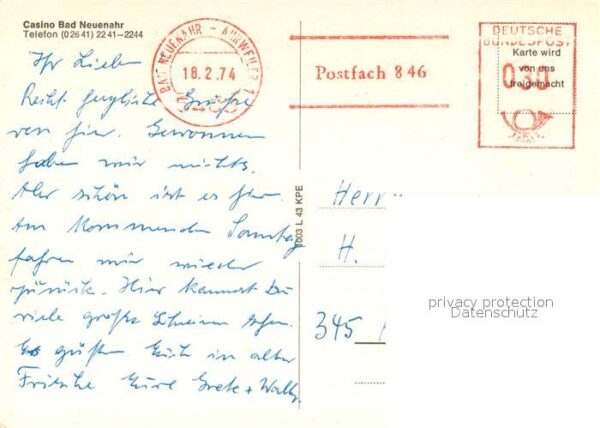 Casino Bad Neuenahr
Telefon (02641) 2241-2244
BAD NEUENAHR - AHRWEILER 1
18.2.74
5483
Postfach 846
DEUTSCHE
BUNDESPOST
Karte wird
von uns
freigemacht
030
Ihr Lieben
Recht herzliche Grüße
von hier. Gewonnen
haben wir nichts.
Aber schön ist es hier.
Am Kommenden Sonntag
fahren wir wieder
zurück. Hier kannst Du
viele große Scheine sehen.
Es grüßen Euch in alter
Frische Eure Grete + Wally.
1003 L 43 KPE
Herrn
H.
345
privacy protection
Datenschutz